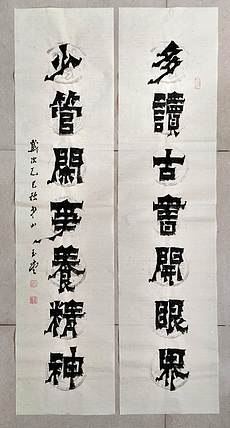 多讀古書開眼界
少管閑事養精神
歲次乙巳秋